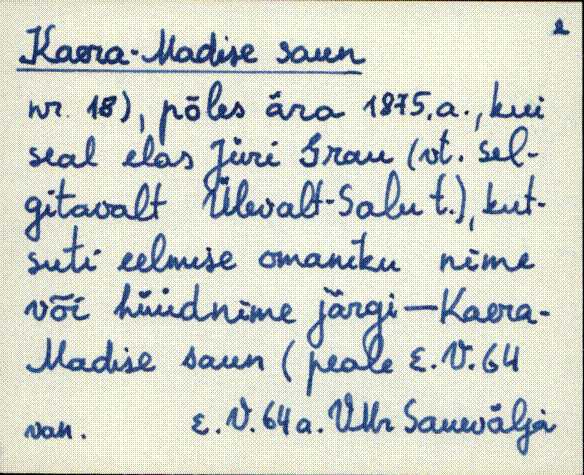 2
Kaera-Madise saun
nr. 18), põles ära 1875.a., kui
seal elas Jüri Grau (vt. sel-
gitavalt Ülevalt-Salu t.), kut-
suti eelmise omaniku nime
või hüüdnime järgi—Kaera-
Madise saun (peale E.V. 64
van. E.V. 64 a. VMr Sauevälja